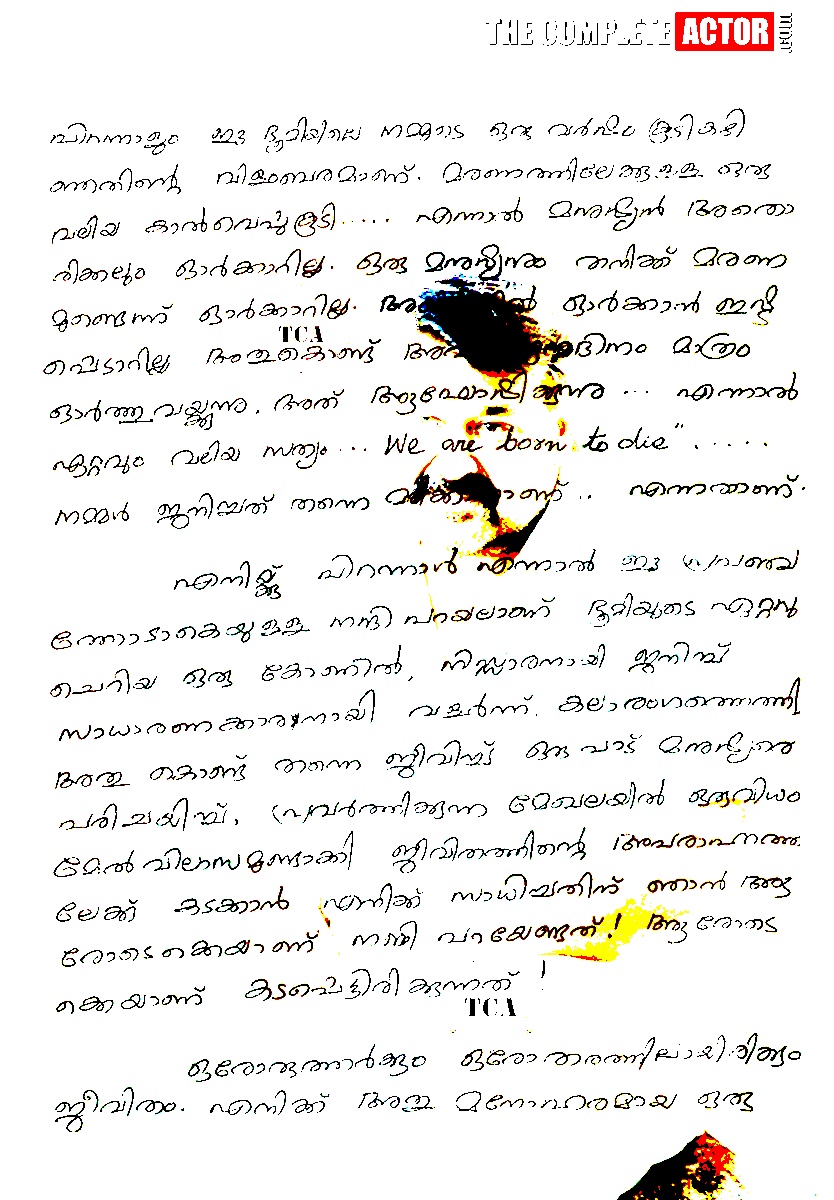 THE COMPLETE ACTOR .COM
പിറന്നാളും ഈ ഭൂമിയിലെ നമ്മുടെ ഒരു വർഷം കൂടി കഴി
ഞ്ഞതിന്റെ വിളംബരമാണ്. മരണത്തിലേക്കുള്ള ഒരു
വലിയ കാൽവെപ്പുകൂടി..... എന്നാൽ മനുഷ്യൻ അതൊ
രിക്കലും ഓർക്കാറില്ല. ഒരു മനുഷ്യനും തനിക്ക് മരണ
മുണ്ടെന്ന് ഓർക്കാറില്ല. ഓർക്കാൻ ഇഷ്ട
TCA
പ്പെടാറില്ല അതുകൊണ്ട് മാത്രം
ഓർത്തുവയ്ക്കുന്നു. അത് ആഘോഷിക്കുന്നു ... എന്നാൽ
ഏറ്റവും വലിയ സത്യം ... We are born to die" .....
നമ്മൾ ജനിച്ചത് തന്നെ മരിക്കാനാണ് .. എന്നതാണ്.
എനിയ്ക്കു പിറന്നാൾ എന്നാൽ ഈ പ്രപഞ്ച
ത്തോടാകെയുള്ള നന്ദി പറയലാണ് ഭൂമിയുടെ ഏറ്റവു
ചെറിയ ഒരു കോണിൽ, നിസ്സാരനായി ജനിച്ച്
സാധാരണക്കാരനായി വളർന്ന്. കലാരംഗത്തെത്തി
അതു കൊണ്ട് തന്നെ ജീവിച്ച് ഒരുപാട് മനുഷ്യരെ
പരിചയിച്ച്, പ്രവർത്തിക്കുന്ന മേഖലയിൽ ഒരുവിധം
മേൽവിലാസമുണ്ടാക്കി ജീവിതത്തിന്റെ അപരാഹ്നത്തി
ലേക്ക് കടക്കാൻ എനിക്ക് സാധിച്ചതിന് ഞാൻ ആ
രോടൊക്കെയാണ് നന്ദി പറയേണ്ടത്! ആരോടൊ
ക്കെയാണ് കടപ്പെട്ടിരിക്കുന്നത് !
TCA
ഒരോരുത്തർക്കും ഒരോ തരത്തിലായിരിക്കും
ജീവിതം. എനിക്ക് അതു മനോഹരമായ ഒരു